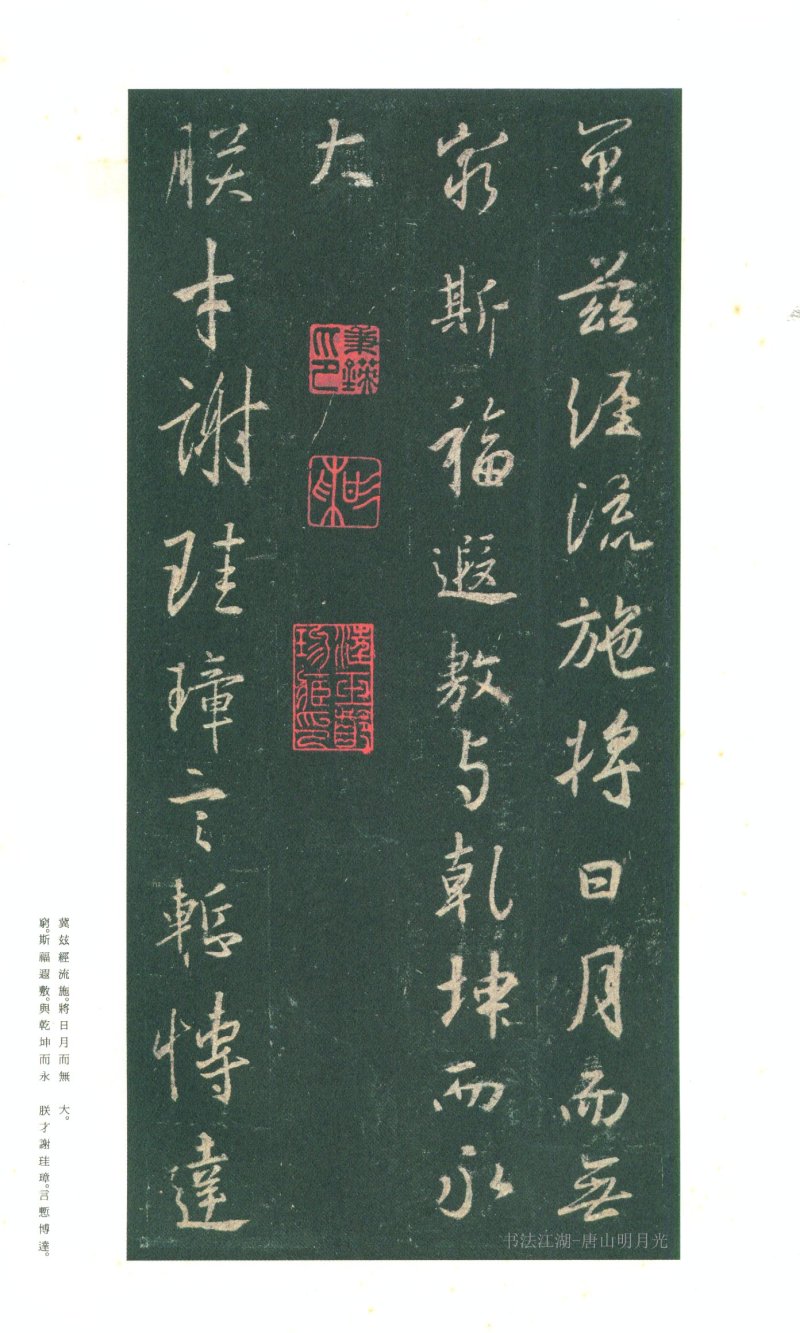 冀茲經流施將日月而無
窮斯福遐敷與乾坤而永
大
朕才謝珪璋言慙博達
冀玆經流施。將日月而無
窮。斯福遐敷。與乾坤而永
大。
朕才謝珪璋。言慙博達。
书法江湖-唐山明月光